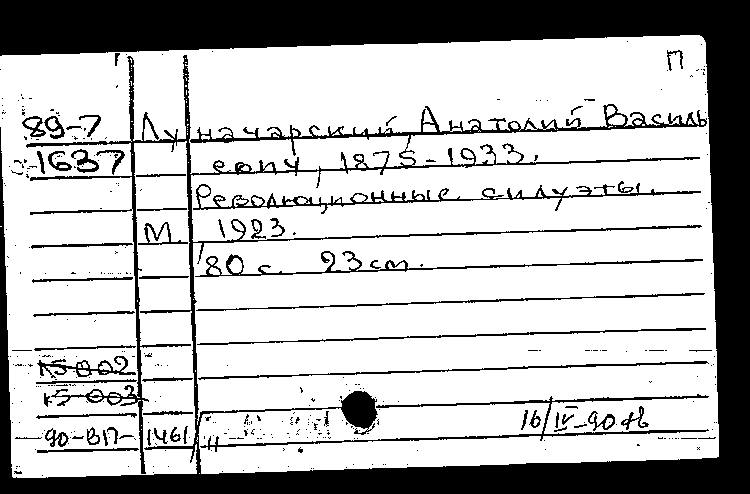 П
89-7 Луначарский, Анатолий Василь
1637 евич, 1875-1933.
Революционные силуэты.
М. 1923.
80 с. 23 см.
15 002
15 003
90-ВП- 1461/11 16/IV-90